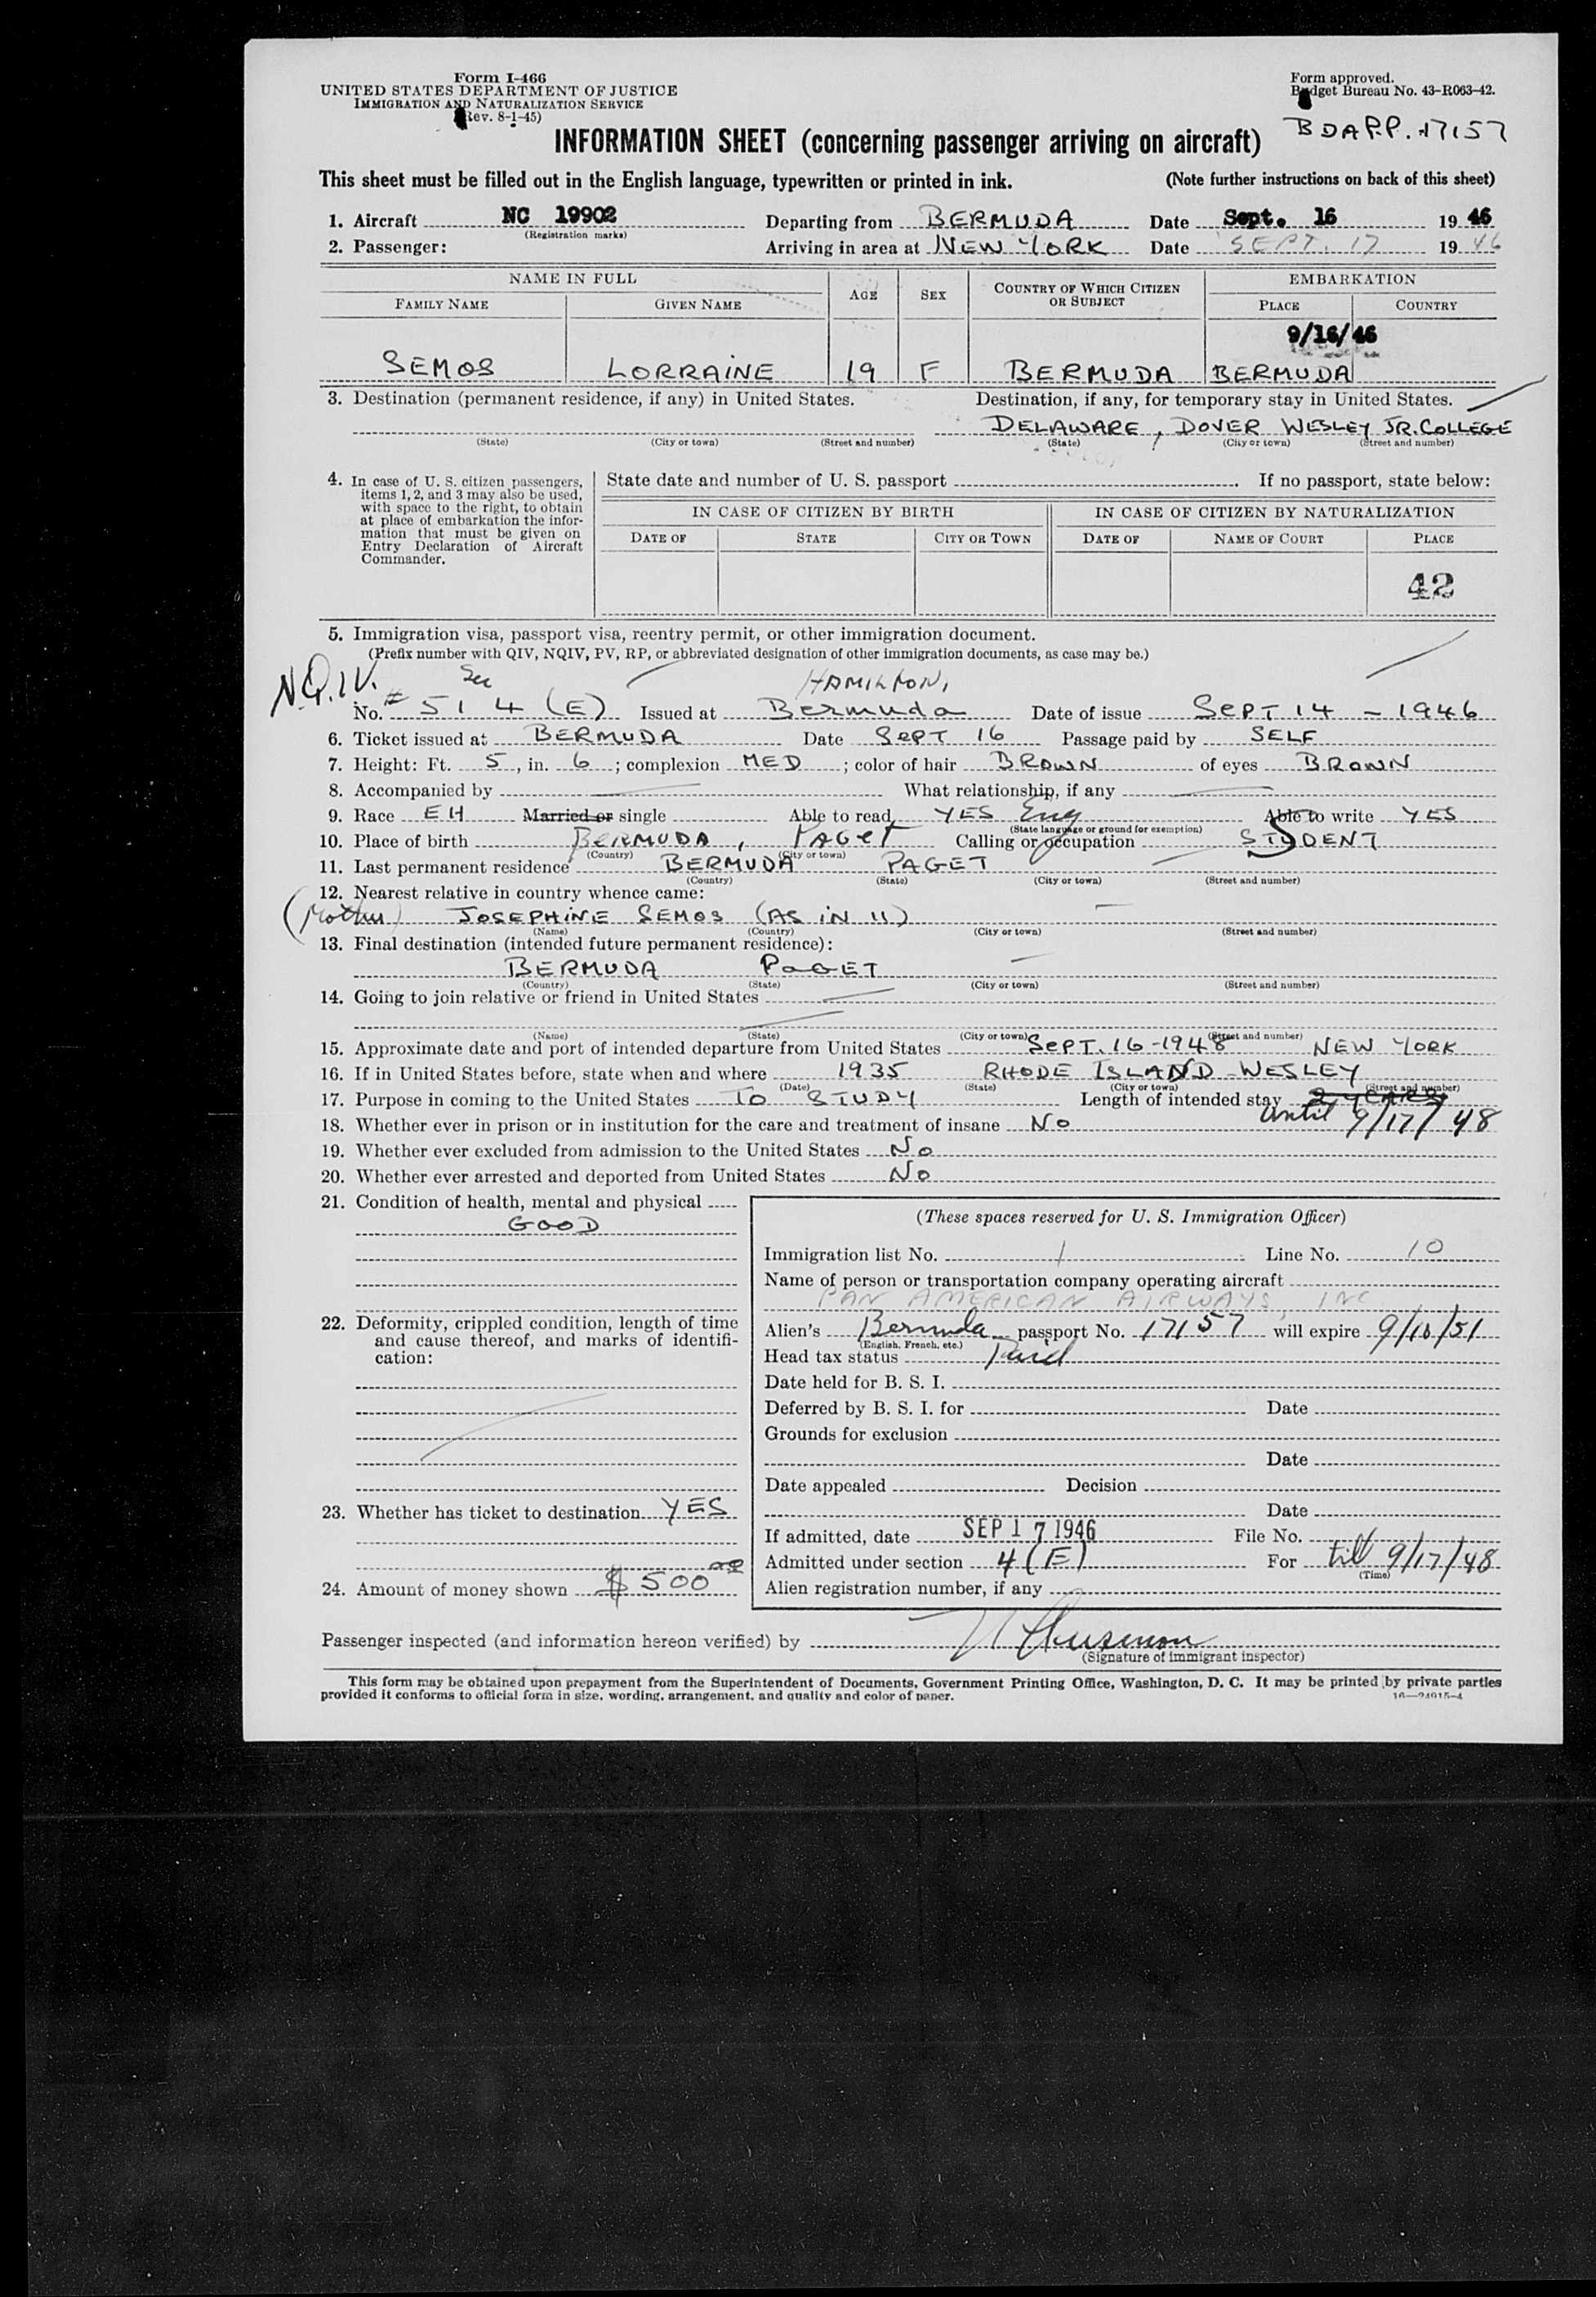 Form I-466
UNITED STATES DEPARTMENT OF JUSTICE
IMMIGRATION AND NATURALIZATION SERVICE
(Rev. 8-1-45)
Form approved.
Budget Bureau No. 43-R063-42.
BDAPP.17157
INFORMATION SHEET (concerning passenger arriving on aircraft)
This sheet must be filled out in the English language, typewritten or printed in ink. (Note further instructions on back of this sheet)
1. Aircraft NC 19902 Departing from BERMUDA Date Sept. 16 19 46
(Registration marks)
2. Passenger: Arriving in area at NEW YORK Date SEPT. 17 19 46
NAME IN FULL AGE SEX COUNTRY OF WHICH CITIZEN OR SUBJECT EMBARKATION
FAMILY NAME GIVEN NAME PLACE COUNTRY
9/16/46
SEMOS LORRAINE 19 F BERMUDA BERMUDA
3. Destination (permanent residence, if any) in United States. Destination, if any, for temporary stay in United States.
DELAWARE, DOVER WESLEY JR. COLLEGE
(State) (City or town) (Street and number) (State) (City or town) (Street and number)
4. In case of U. S. citizen passengers, items 1, 2, and 3 may also be used, with space to the right, to obtain at place of embarkation the information that must be given on Entry Declaration of Aircraft Commander.
State date and number of U. S. passport . If no passport, state below:
IN CASE OF CITIZEN BY BIRTH IN CASE OF CITIZEN BY NATURALIZATION
DATE OF STATE CITY OR TOWN DATE OF NAME OF COURT PLACE
42
5. Immigration visa, passport visa, reentry permit, or other immigration document.
(Prefix number with QIV, NQIV, PV, RP, or abbreviated designation of other immigration documents, as case may be.)
N.Q.I.V. Sec HAMILTON,
No. # 51 4 (E) Issued at Bermuda Date of issue SEPT 14 - 1946
6. Ticket issued at BERMUDA Date SEPT 16 Passage paid by SELF
7. Height: Ft. 5, in. 6; complexion MED; color of hair BROWN of eyes BROWN
8. Accompanied by What relationship, if any
9. Race EH Married or single Able to read YES Eng Able to write YES
(State language or ground for exemption)
10. Place of birth BERMUDA, PAGET Calling or occupation STUDENT
(Country) (City or town)
11. Last permanent residence BERMUDA PAGET
(Country) (State) (City or town) (Street and number)
12. Nearest relative in country whence came:
(Mother) JOSEPHINE SEMOS (AS IN 11)
(Name) (Country) (City or town) (Street and number)
13. Final destination (intended future permanent residence):
BERMUDA PAGET
(Country) (State) (City or town) (Street and number)
14. Going to join relative or friend in United States
(Name) (State) (City or town) (Street and number)
15. Approximate date and port of intended departure from United States SEPT. 16-1948 NEW YORK
16. If in United States before, state when and where 1935 RHODE ISLAND WESLEY
(Date) (State) (City or town) (Street and number)
17. Purpose in coming to the United States TO STUDY Length of intended stay 2 YEARS
until 9/17/48
18. Whether ever in prison or in institution for the care and treatment of insane No
19. Whether ever excluded from admission to the United States No
20. Whether ever arrested and deported from United States No
21. Condition of health, mental and physical
GOOD
22. Deformity, crippled condition, length of time and cause thereof, and marks of identification:
23. Whether has ticket to destination YES
24. Amount of money shown $500 00
(These spaces reserved for U. S. Immigration Officer)
Immigration list No. 1 Line No. 10
Name of person or transportation company operating aircraft
PAN AMERICAN AIRWAYS, INC
Alien's Bermuda passport No. 17157 will expire 9/10/51
(English, French, etc.)
Head tax status Paid
Date held for B. S. I.
Deferred by B. S. I. for Date
Grounds for exclusion
Date
Date appealed Decision
Date
If admitted, date SEP 17 1946 File No.
Admitted under section 4(E) For till 9/17/48
(Time)
Alien registration number, if any
Passenger inspected (and information hereon verified) by
(Signature of immigrant inspector)
This form may be obtained upon prepayment from the Superintendent of Documents, Government Printing Office, Washington, D. C. It may be printed by private parties
provided it conforms to official form in size, wording, arrangement, and quality and color of paper.
16—24915-4